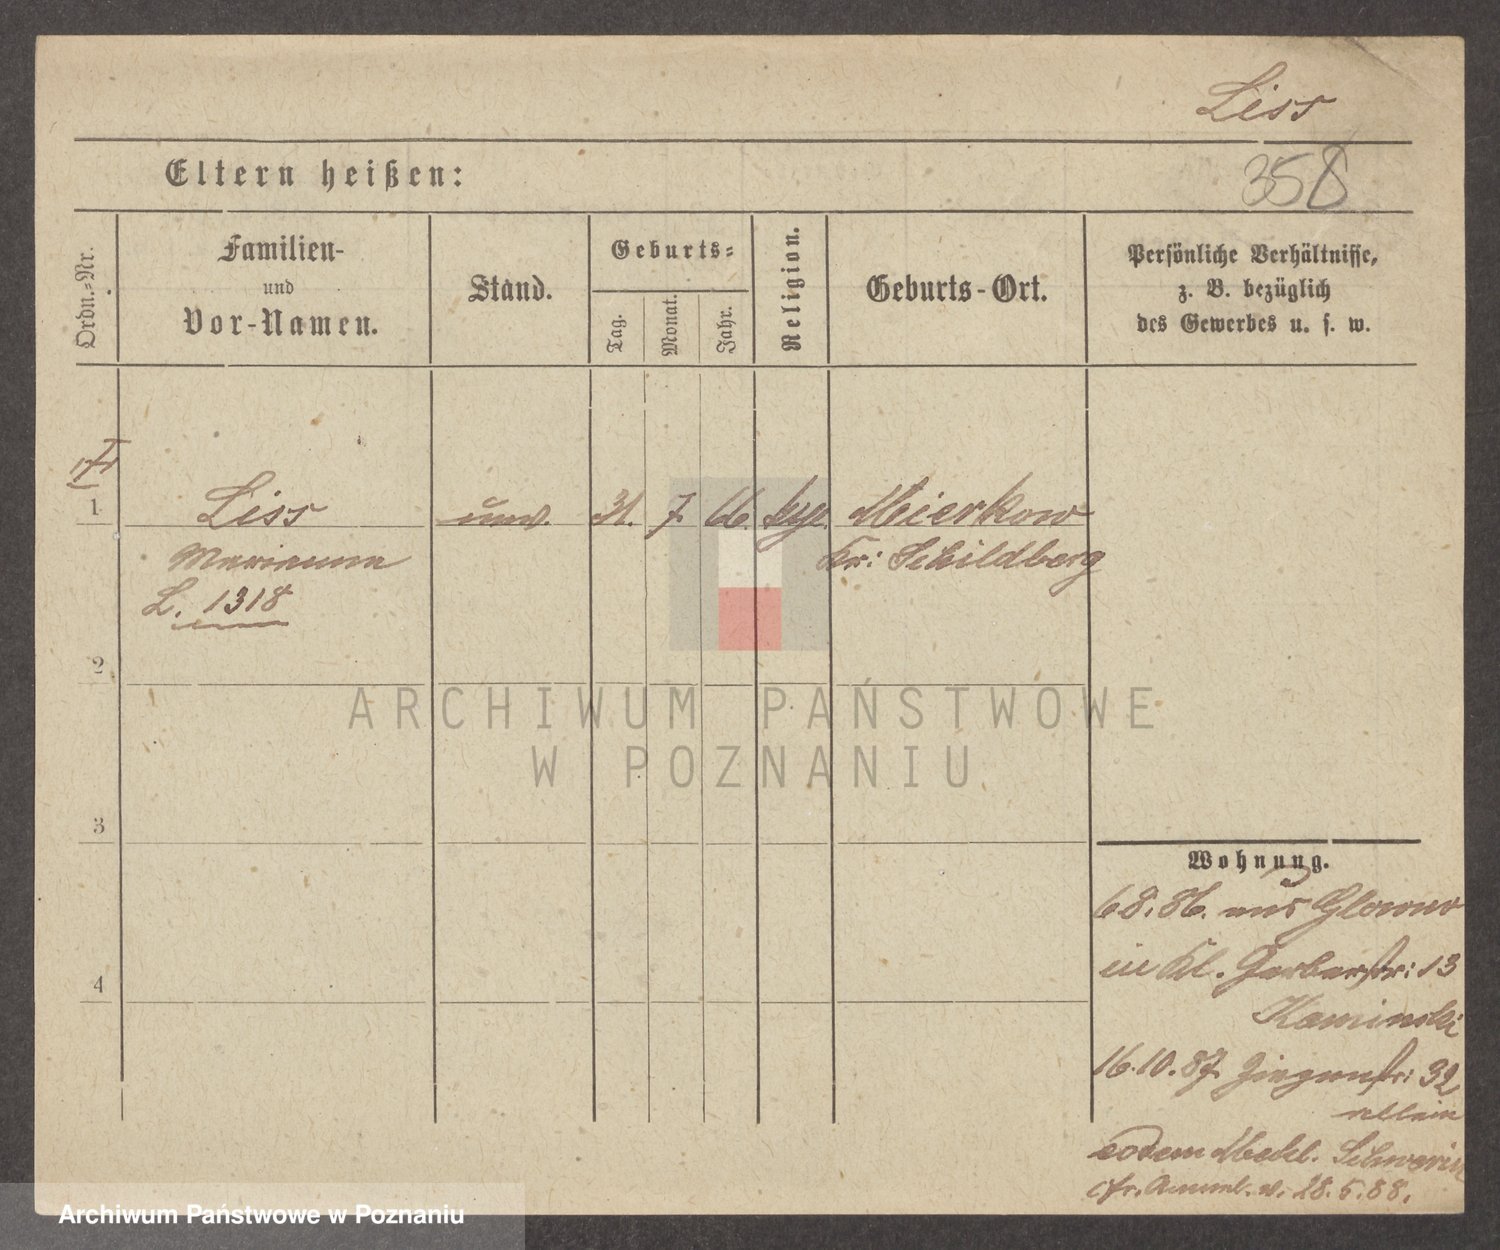 Liss
358
Eltern heißen:
Ordn.=Nr.
Familien-
und
Vor-Namen.
Stand.
Geburts=
Tag.
Monat.
Jahr.
Religion.
Geburts-Ort.
Persönliche Verhältnisse,
z. B. bezüglich
des Gewerbes u. s. w.
1
Liss
unv. 31. 7. 66.
Mierkow
Marianna
Kr: Schildberg
L. 1318
2
ARCHIWUM PAŃSTWOWE
W POZNANIU
3
4
Wohnung.
6 8. 86. aus Glowno
in Kl. Gerberstr: 13
Kaminski
16.10.87. Ziegenstr: 32
allein
eodem Meckl. Schwerin
cfr. v. 28.5.88.
Archiwum Państwowe w Poznaniu